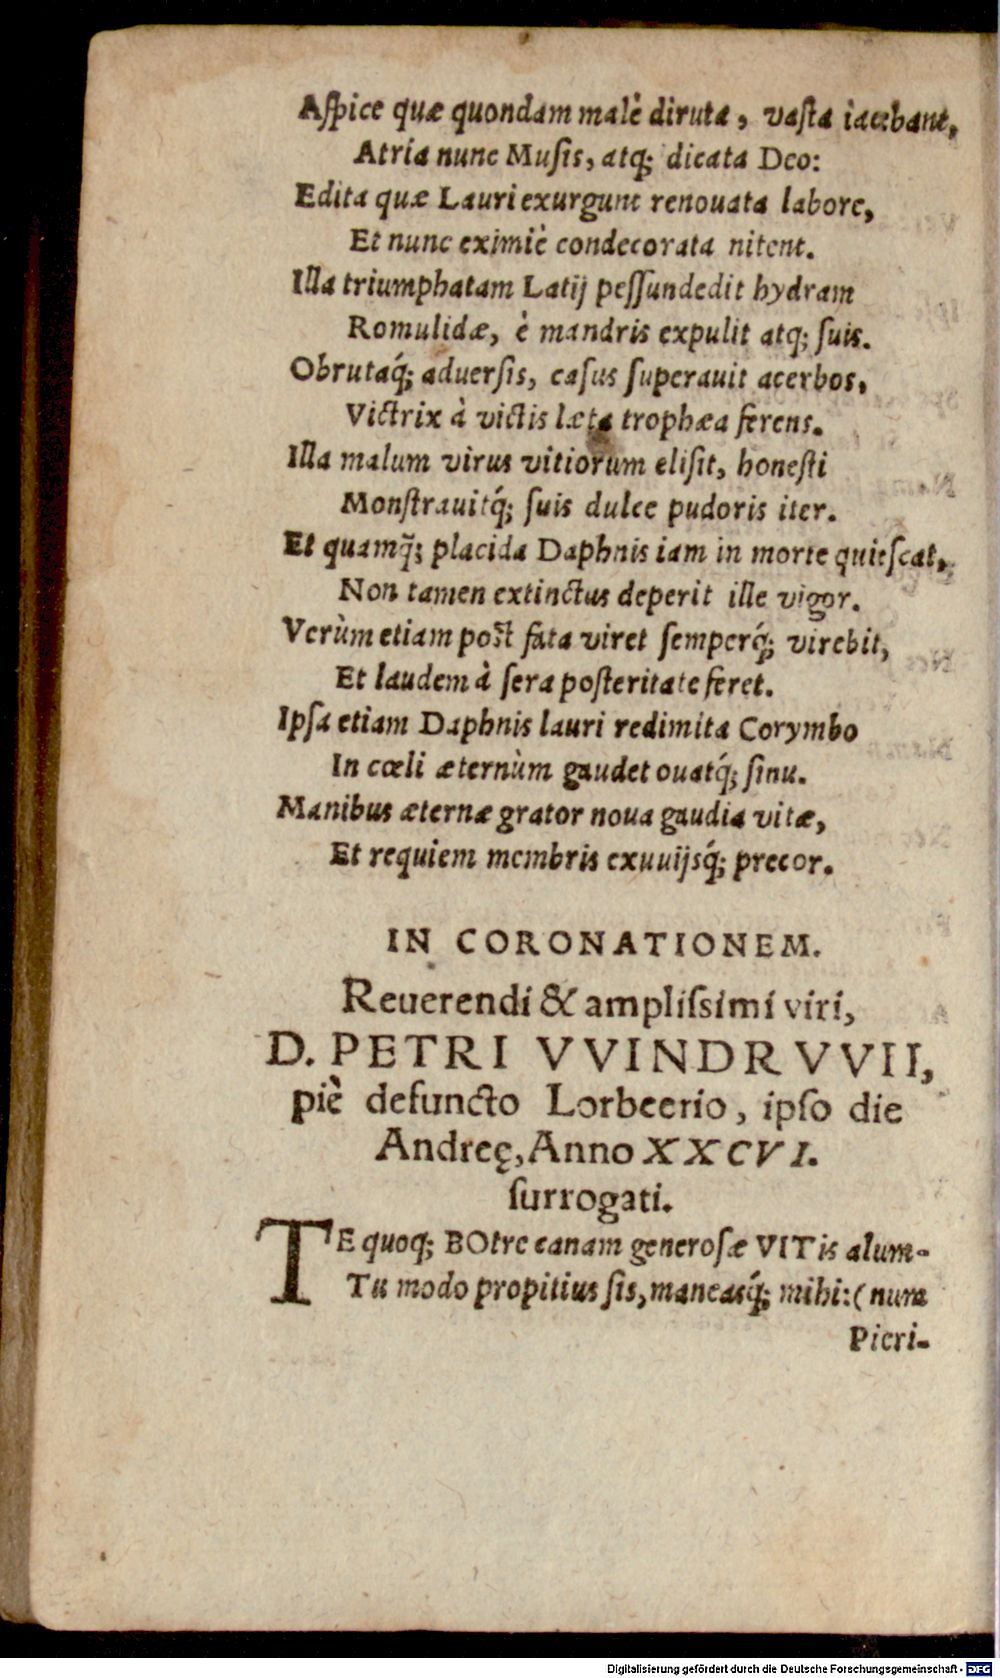 Aſpice quæ quondam malè diruta, vaſta iacebant,
Atria nunc Muſis, atq; dicata Deo:
Edita quæ Lauri exurgunt renouata labore,
Et nunc eximiè condecorata nitent.
Illa triumphatam Latij peſſundedit hydram
Romulidæ, è mandris expulit atq; ſuis.
Obrutaq́; aduerſis, caſus ſuperauit acerbos,
Victrix à victis læta trophæa ferens.
Illa malum virus vitiorum eliſit, honeſti
Monſtrauitq́; ſuis dulce pudoris iter.
Et quamq̃; placida Daphnis iam in morte quieſcat,
Non tamen extinctus deperit ille vigor.
Verùm etiam poſt fata viret ſemperq́; virebit,
Et laudem à ſera poſteritate feret.
Ipſa etiam Daphnis lauri redimita Corymbo
In cœli æternùm gaudet ouatq́; ſinu.
Manibus æternæ grator noua gaudia vitæ,
Et requiem membris exuuijsq́; precor.
IN CORONATIONEM.
Reuerendi & ampliſsimi viri,
D. PETRI VVINDRVVII,
piè defuncto Lorbeerio, ipſo die
Andreę, Anno XXCVI.
ſurrogati.
TE quoq; BOtre canam generoſæ VITis alum-
Tu modo propitius ſis, maneasq́; mihi: (num
Pieri-
Digitalisierung gefördert durch die Deutsche Forschungsgemeinschaft - DFG